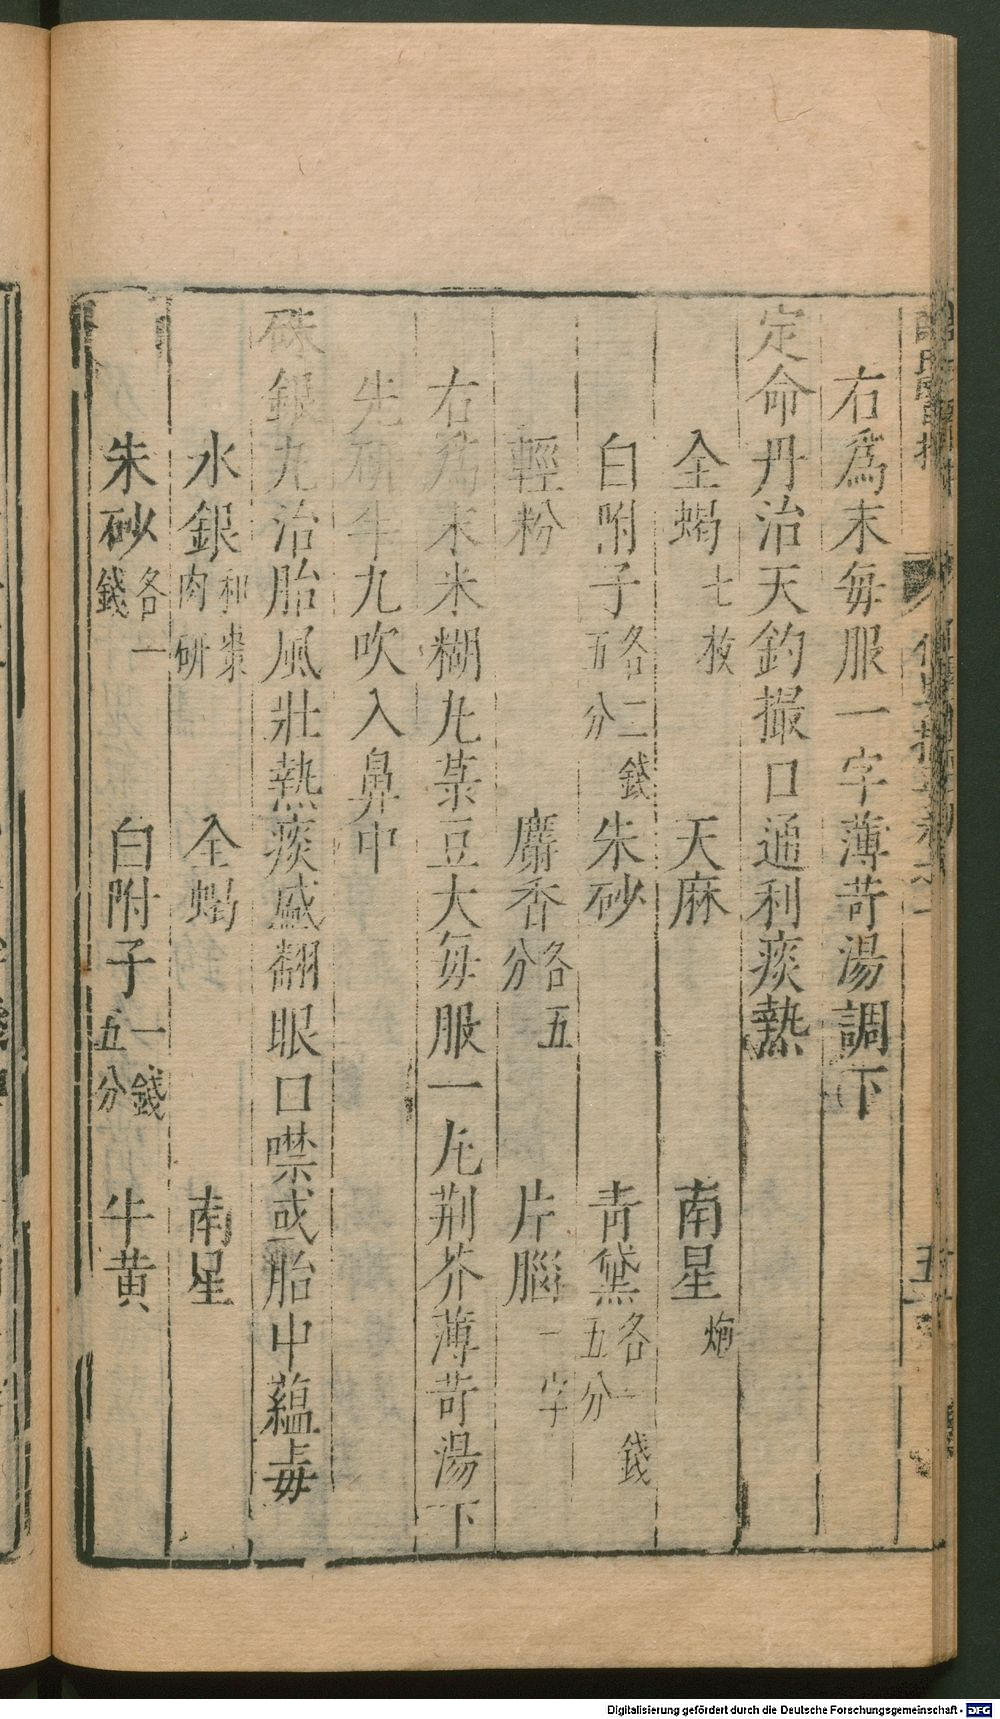 右爲末每服一字薄苛湯調下
定命丹治天釣撮口通利痰熱
全蝎七枚 天麻 南星炮
白附子各二錢五分 朱砂 青黛各一錢五分
輕粉 麝香各五分 片腦一字
右爲末米糊丸菉豆大每服一丸荆芥薄苛湯下
先研半丸吹入鼻中
硃銀丸治胎風壯熱痰盛翻眼口噤或胎中蘊毒
水銀和棗肉研 全蝎 南星
朱砂各一錢 白附子一錢五分 牛黄
Digitalisierung gefördert durch die Deutsche Forschungsgemeinschaft - DFG